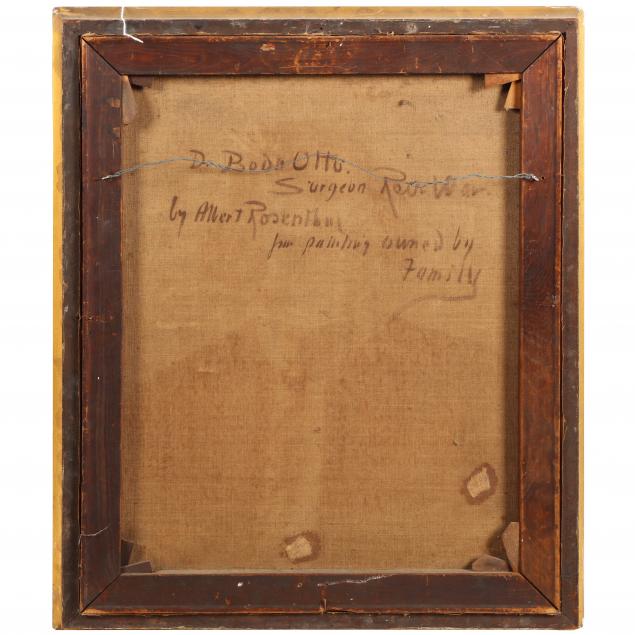 Dr Bodo Otto.
Surgeon Rev. War.
by Albert Rosenthal
from painting owned by
Family